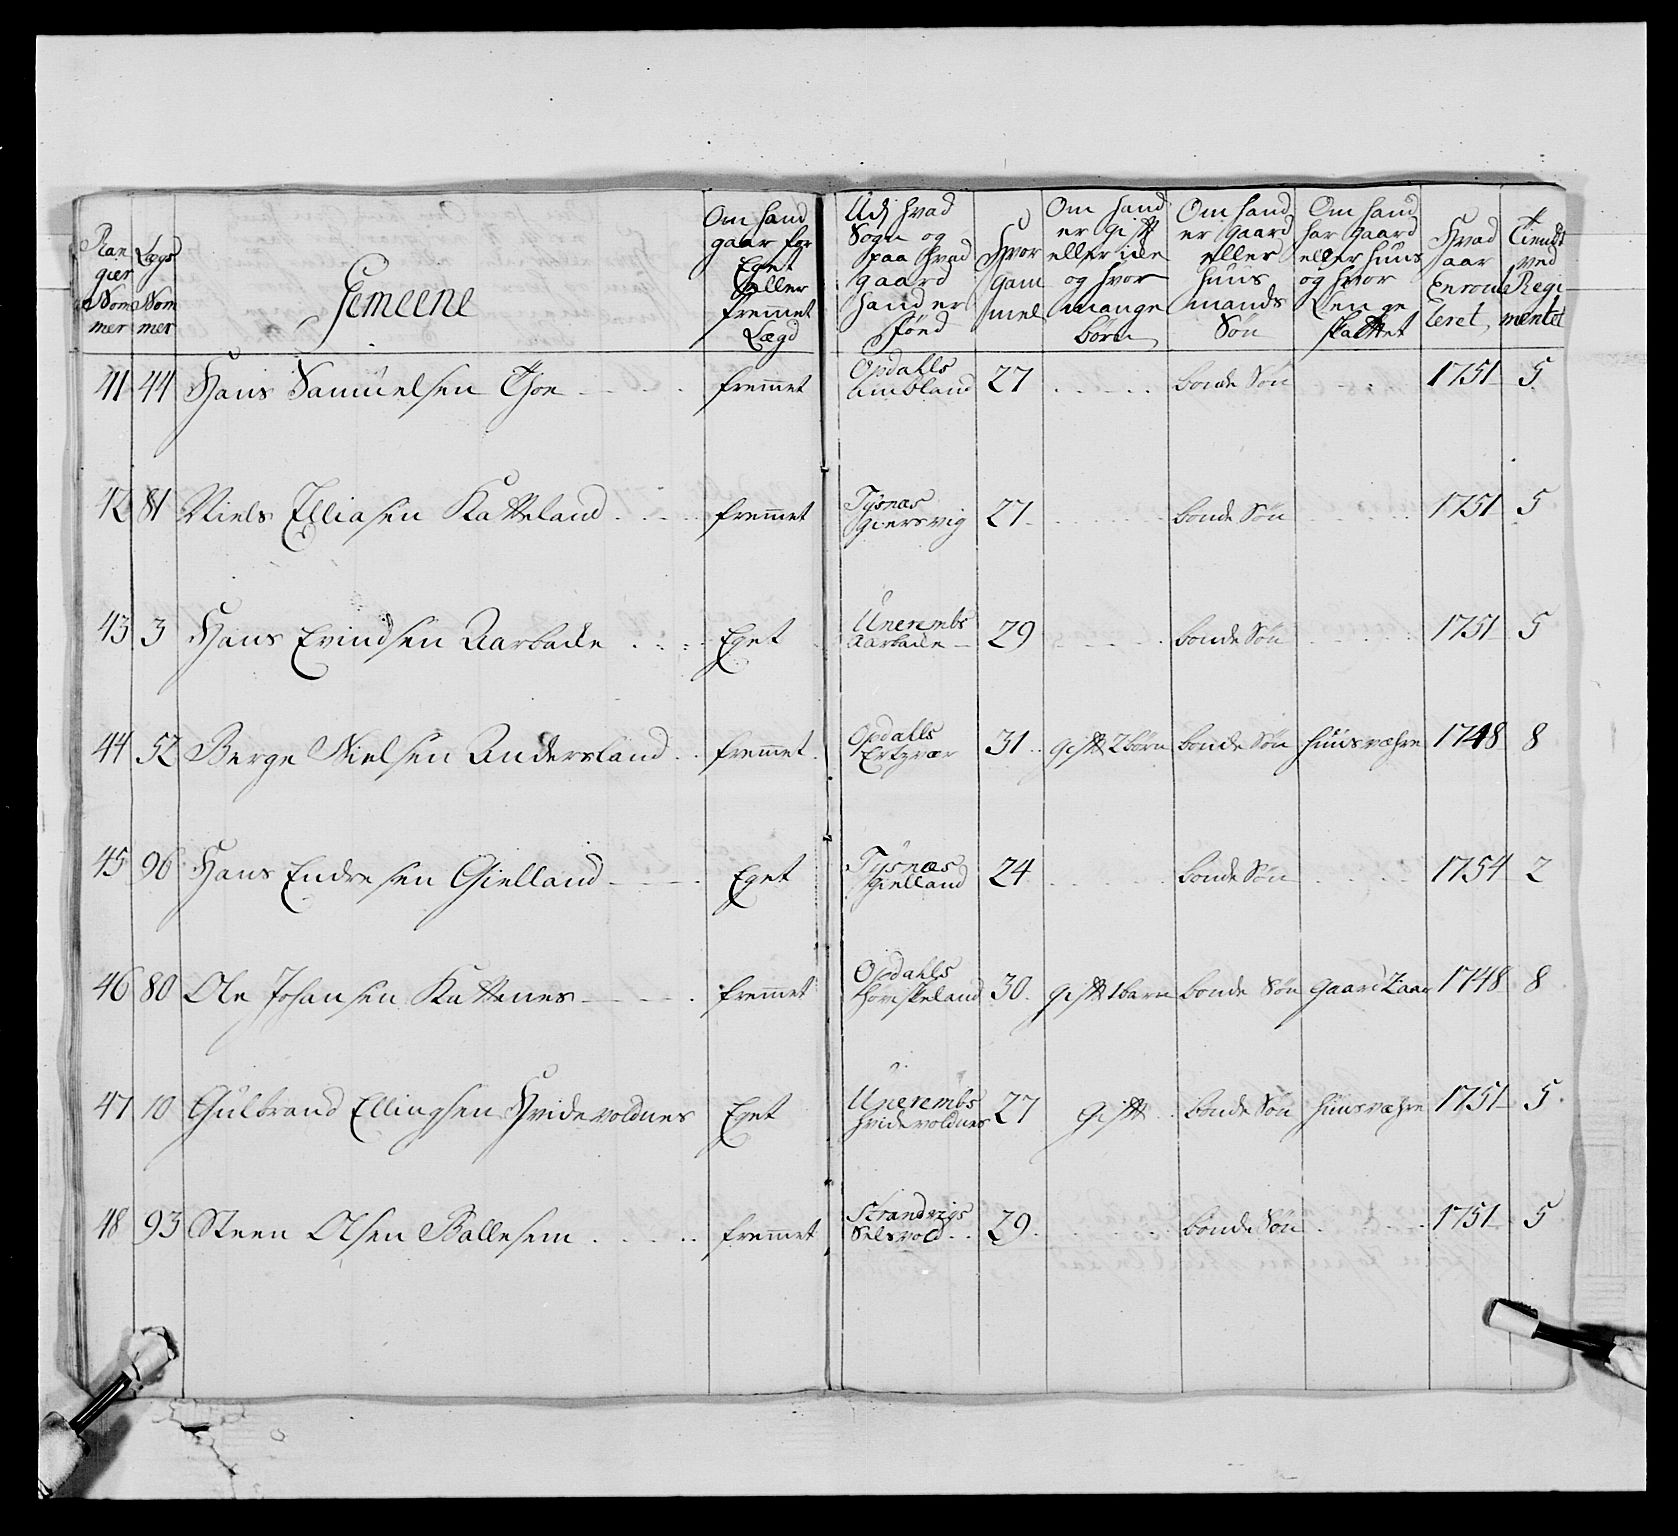 Ran
gier
Nom
mer
Lægs
Nom
mer
Gemeene
Om hand
gaar for
Eget
eller
fremmet
Lægd
Udj hvad
Sogn og
paa hvad
gaard
hand er
fönd
Hvor
gam
mel
Om hand
er gift
eller iche
og hvor
mange
börn
Om hand
er gaard
eller
huus
mands
Sön
Om hand
har gaard
eller huus
og hvor
Lenge
skattet
Hvad
aar
Enroul
leret
Tiendt
ved
Regi
mentet
41 44 Hans Samuelsen Tjoe fremmet Opdahls
Ambland 27 bonde Sön 1751 5
42 81 Niels Elliasen Katteland fremmet Tysnæs
Giersvig 27 bonde Sön 1751 5
43 3 Hans Evindsen Aarbache Eget Unerembs
Aarbache 29 bonde Sön 1751 5
44 52 Berge Nielsen Andersland fremmet Opdahls
Ertzvær 31 gift 2 börn bonde Sön huusvæhre 1748 8
45 96 Hans Endresen Gielland Eget Tysnæs
Gielland 24 bonde Sön 1754 2
46 80 Ole Johansen Kattenes fremmet Opdahls
höviskeland 30 gift 1 barn bonde Sön gaard 2 aar 1748 8
47 10 Gulbrand Ellingsen Hvidevoldnes Eget Unerembs
hvidevoldnes 27 gift bonde Sön huusvæhre 1751 5
48 93 Steen Olsen Ballesem fremmet Strandvigs
Selsvold 29 bonde Sön 1751 5